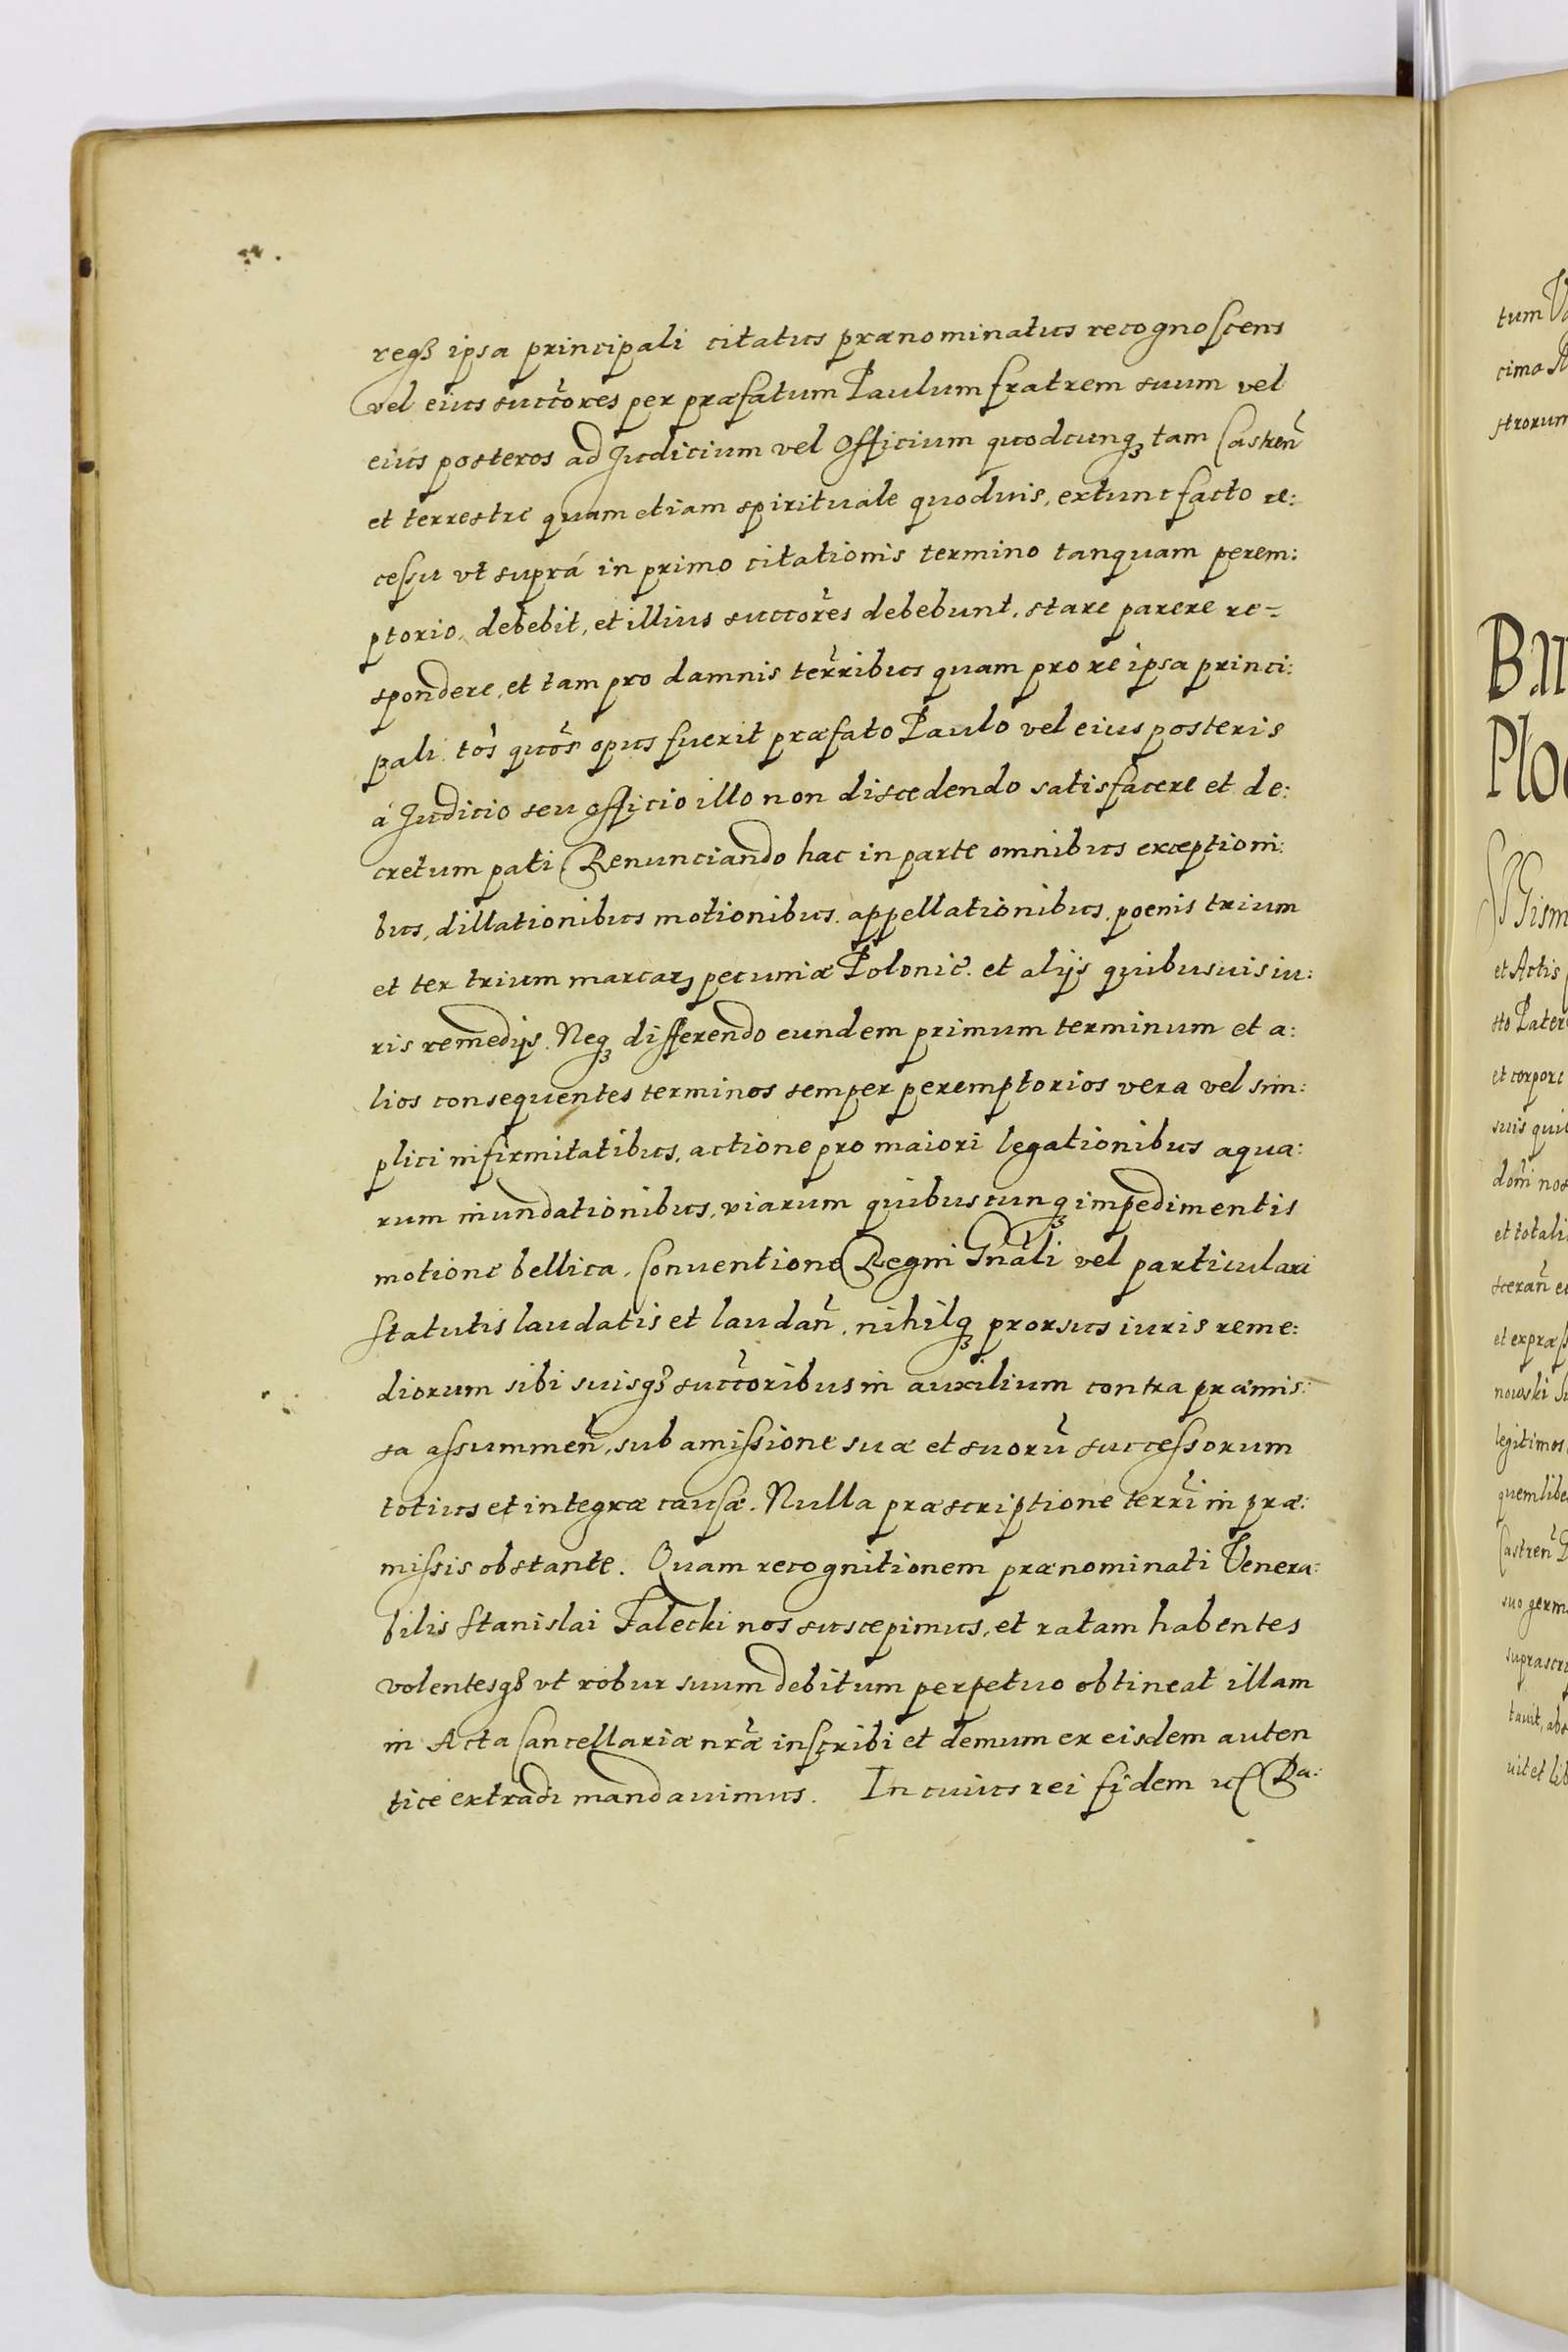 reqȝ ipsa principali citatus prænominatus recognoscens
vel eius succ̃ores per præfatum Paulum fratrem suum vel
eius posteros ad Judicium vel Officium quodcunqȝ tam Castreñ
et terrestre quam etiam spirituale quoduis, extunc facto re:
cessu vt suprá in primo citationis termino tanquam perem:
ptorio, debebit, et illius succõres debebunt, stare parere re=
spondere, et tam pro damnis terr̃ibus quam pro re ipsa princi:
pali tõs quõs opus fuerit præfato Paulo vel eius posteris
á Judicio seu Officio illo non discedendo satisfacere et de:
cretum pati Renunciando hac in parte omnibus exceptioni:
bus, dillationibus motionibus, appellationibus, poenis trium
et ter trium marcarꝝ pecuniæ Polonic̃. et alijs quibusuis iu:
ris remedijs. Neqȝ differendo eundem primum terminum et a:
lios consequentes terminos semper peremptorios vera vel sim:
plici infirmitatibus, actione pro maiori legationibus aqua:
rum inundationibus, viarum quibuscunqȝ impedimentis
motione bellica, Conuentione Regni Gnãli vel particulari
Statutis laudatis et laudañ, nihilqȝ prorsus iuris reme:
diorum sibi suisqȝ succ̃oribus in auxilium contra præmis:
sa assummeñ, sub amissione suæ et suorũ successorum
totius et integræ causæ. Nulla præscriptione terr̃i in præ:
missis obstante. Quam recognitionem prænominati Venera:
bilis Stanislai Falecki nos suscepimus, et ratam habentes
volentesqȝ vt robur suum debitum perpetuo obtineat illam
in Acta Cancellariæ nr̃æ inscribi et demum ex eisdem auten
tice extradi mandauimus. In cuius rei fidem